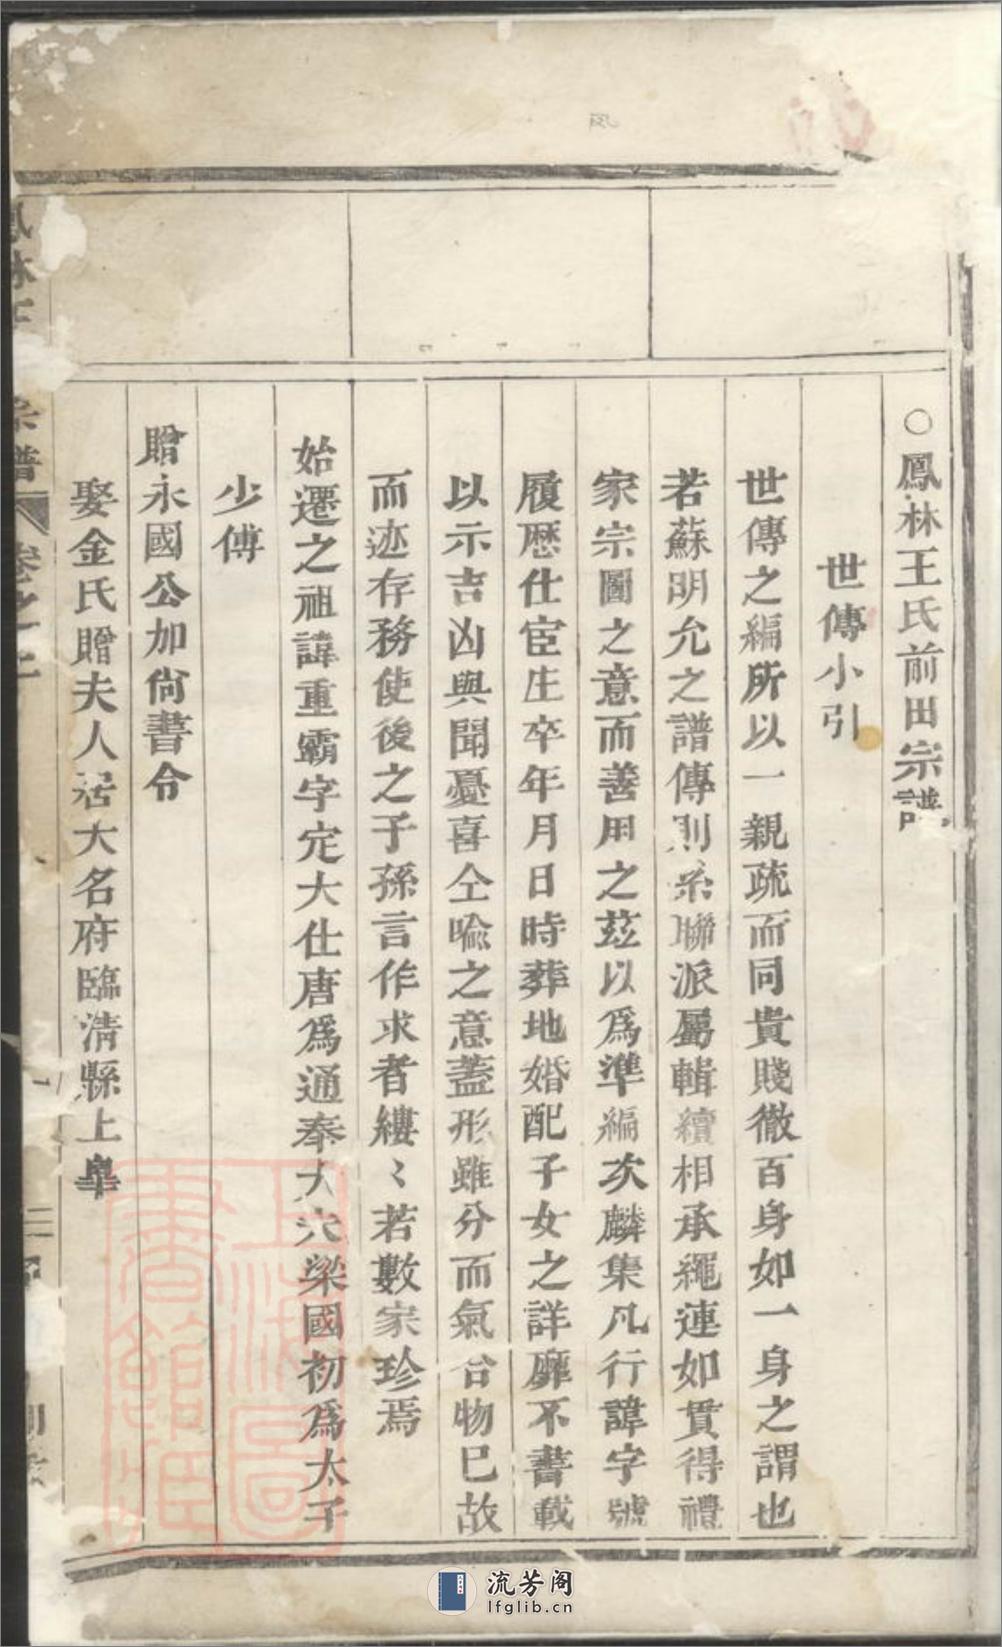 ○鳳林王氏前田宗譜
世傳小引
世傳之編所以一親疏而同貴賤徹百身如一身之謂也
若蘇明允之譜傳則系聯派屬輯續相承繩連如貫得禮
家宗圖之意而善用之茲以爲準編次麟集凡行諱字號
履歷仕宦生卒年月日時葬地婚配子女之詳靡不書載
以示吉凶與聞憂喜仝喻之意蓋形雖分而氣合物已故
而迹存務使後之子孫言作求者縷〻若數家珍焉
始遷之祖諱重霸字定大仕唐爲通奉大夫梁國初爲太子
少傅
贈永國公加尙書令
娶金氏贈夫人居大名府臨清縣上
宗譜
卷之上
上海圖書館藏
流芳阁
lfglib.cn